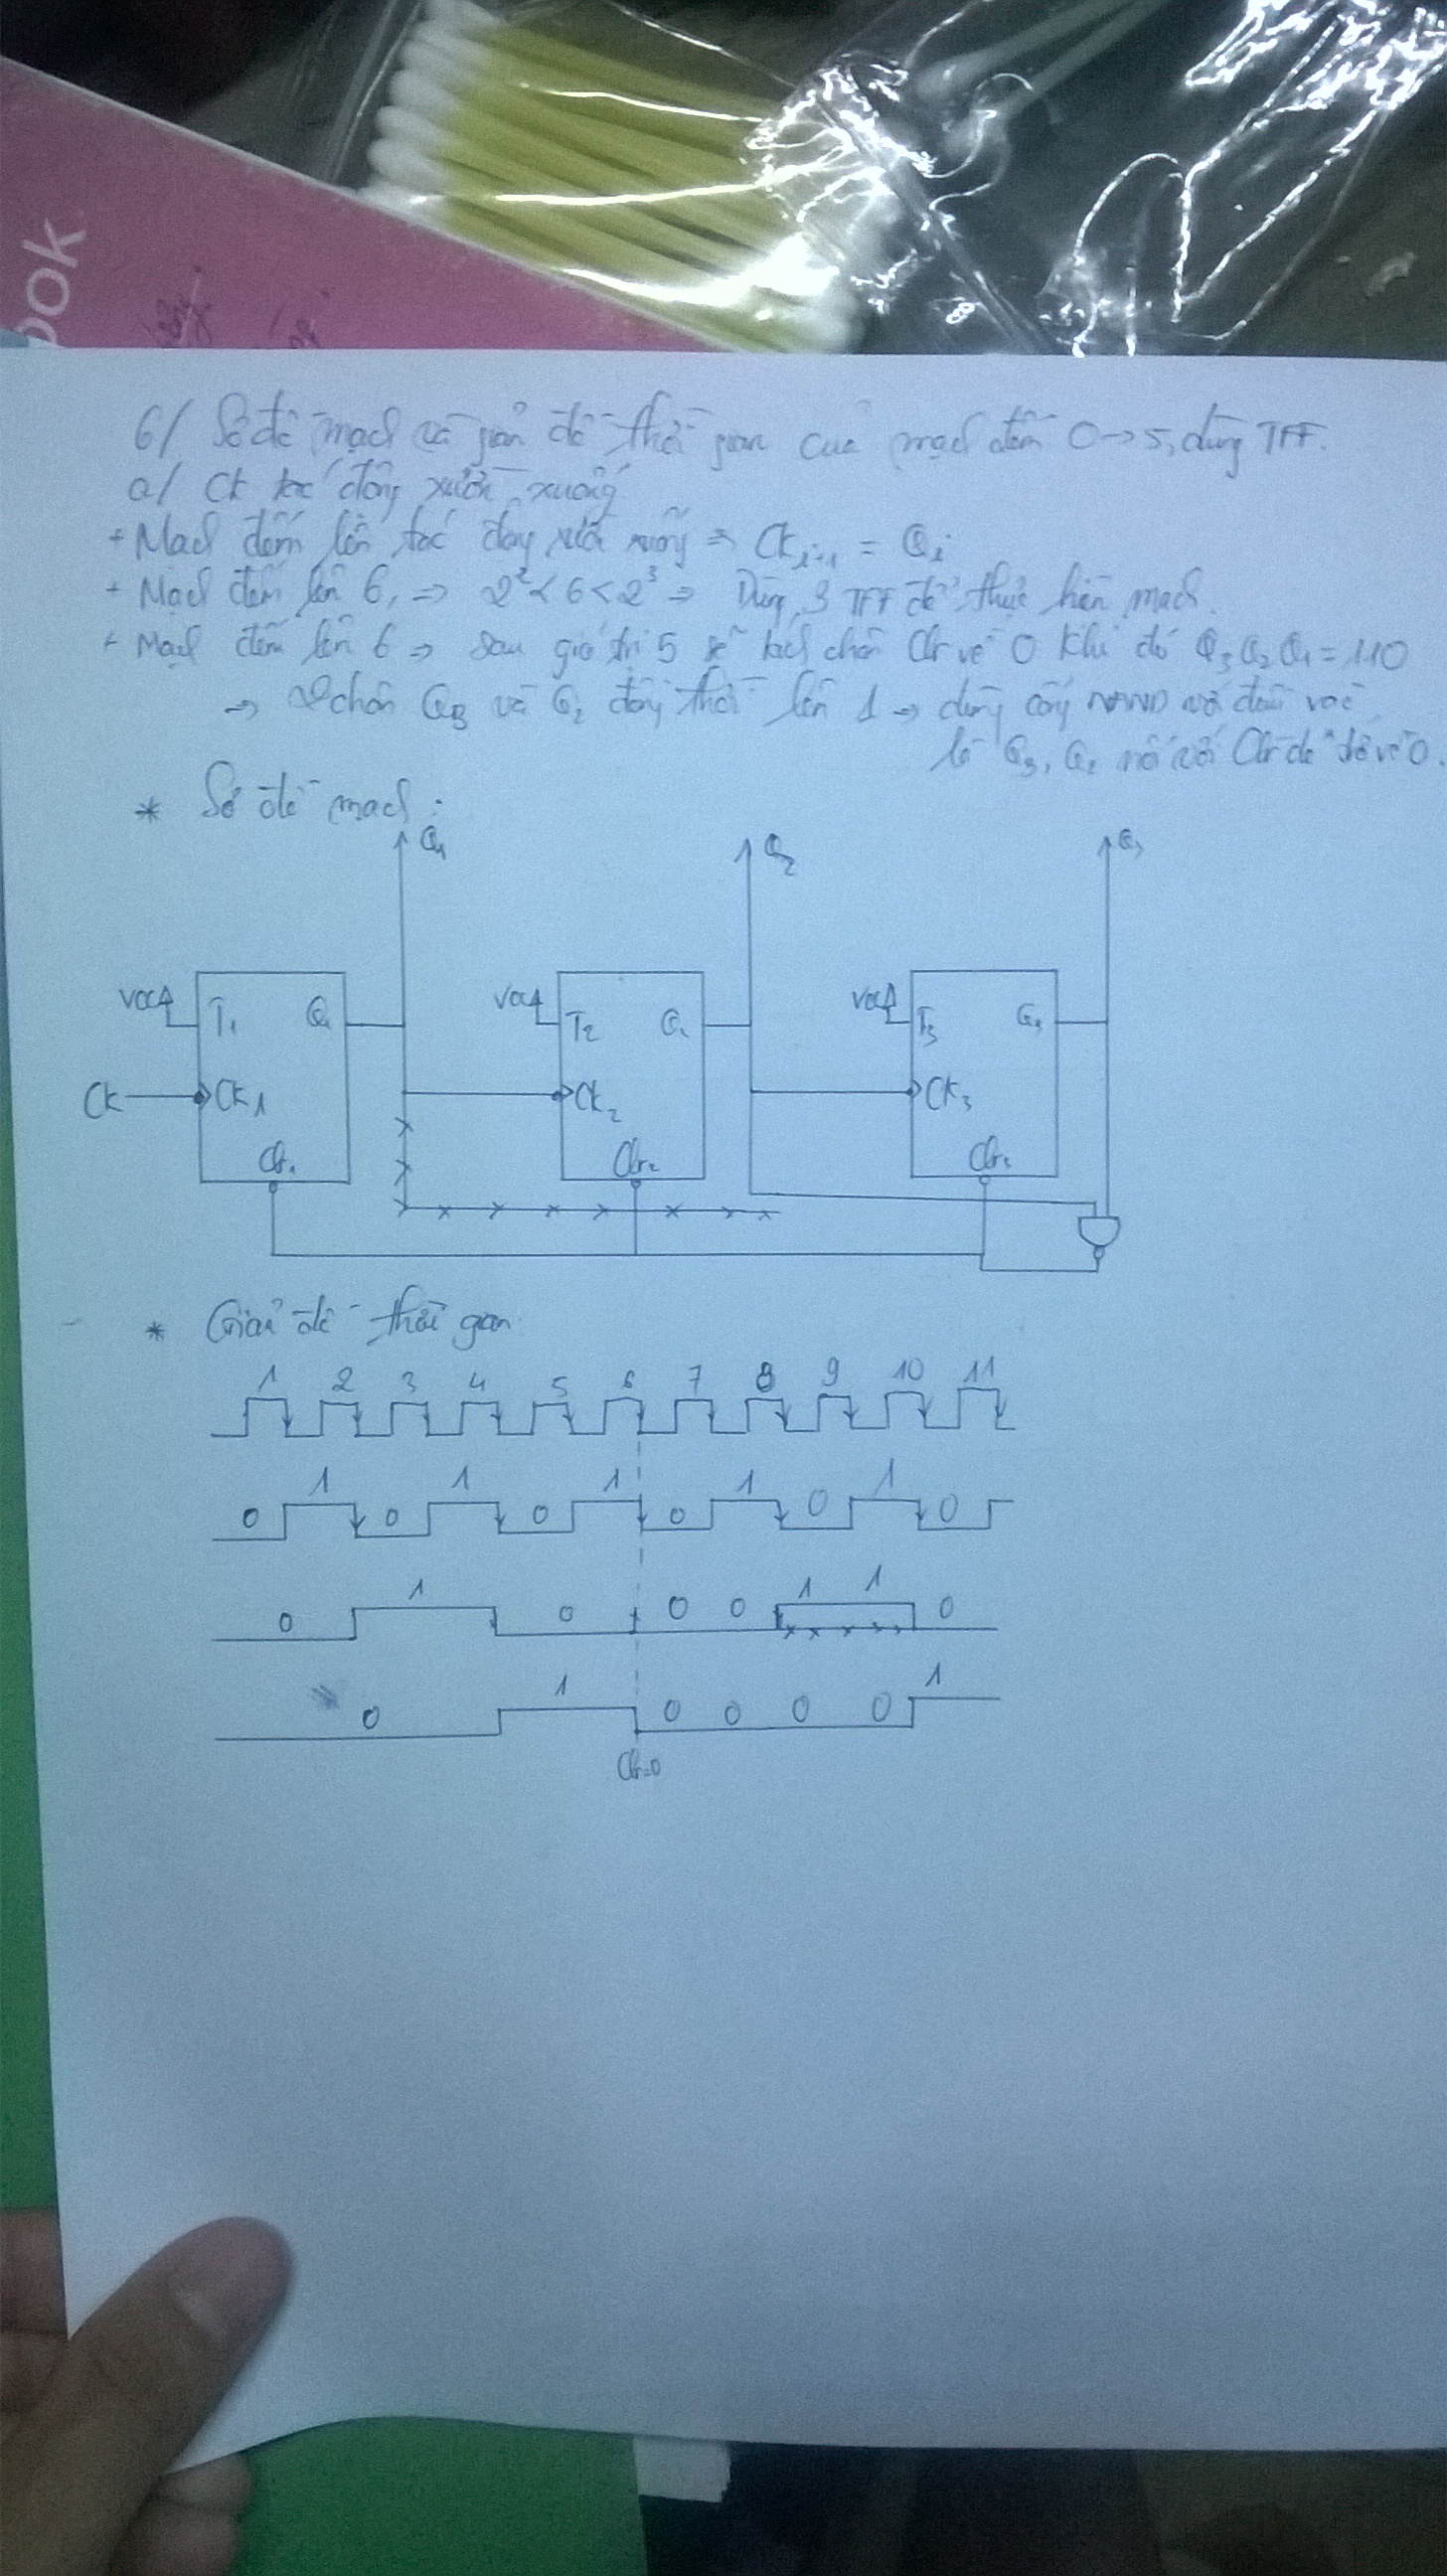 ook
6/ Sơ đồ mạch và giản đồ thời gian của mạch đếm 0→5, dùng TFF.
a/ Ck tác động sườn xuống
+ Mạch đếm lên tác động sườn xuống ⇒ Ck i+1 = Qi
+ Mạch đếm lên 6, ⇒ 2² < 6 < 2³ ⇒ Dùng 3 TFF để thực hiện mạch.
+ Mạch đếm lên 6 ⇒ sau giá trị 5 sẽ kích chân Clr về 0 khi đó Q3Q2Q1 = 110
⇒ chân Q3 và Q2 đồng thời lên 1 ⇒ dùng cổng NAND với đầu vào
là Q3, Q2 nối với Clr để về 0.
* Sơ đồ mạch:
Q1 Q2 Q3
VCC T1 Q1 VCC T2 Q2 VCC T3 Q3
Ck Ck1 Ck2 Ck3
Clr1 Clr2 Clr3
* Giản đồ thời gian
1 2 3 4 5 6 7 8 9 10 11
0 1 0 1 0 1 0 1 0 1 0
0 1 0 0 0 1 1 0
0 1 0 0 0 0 1
Clr=0